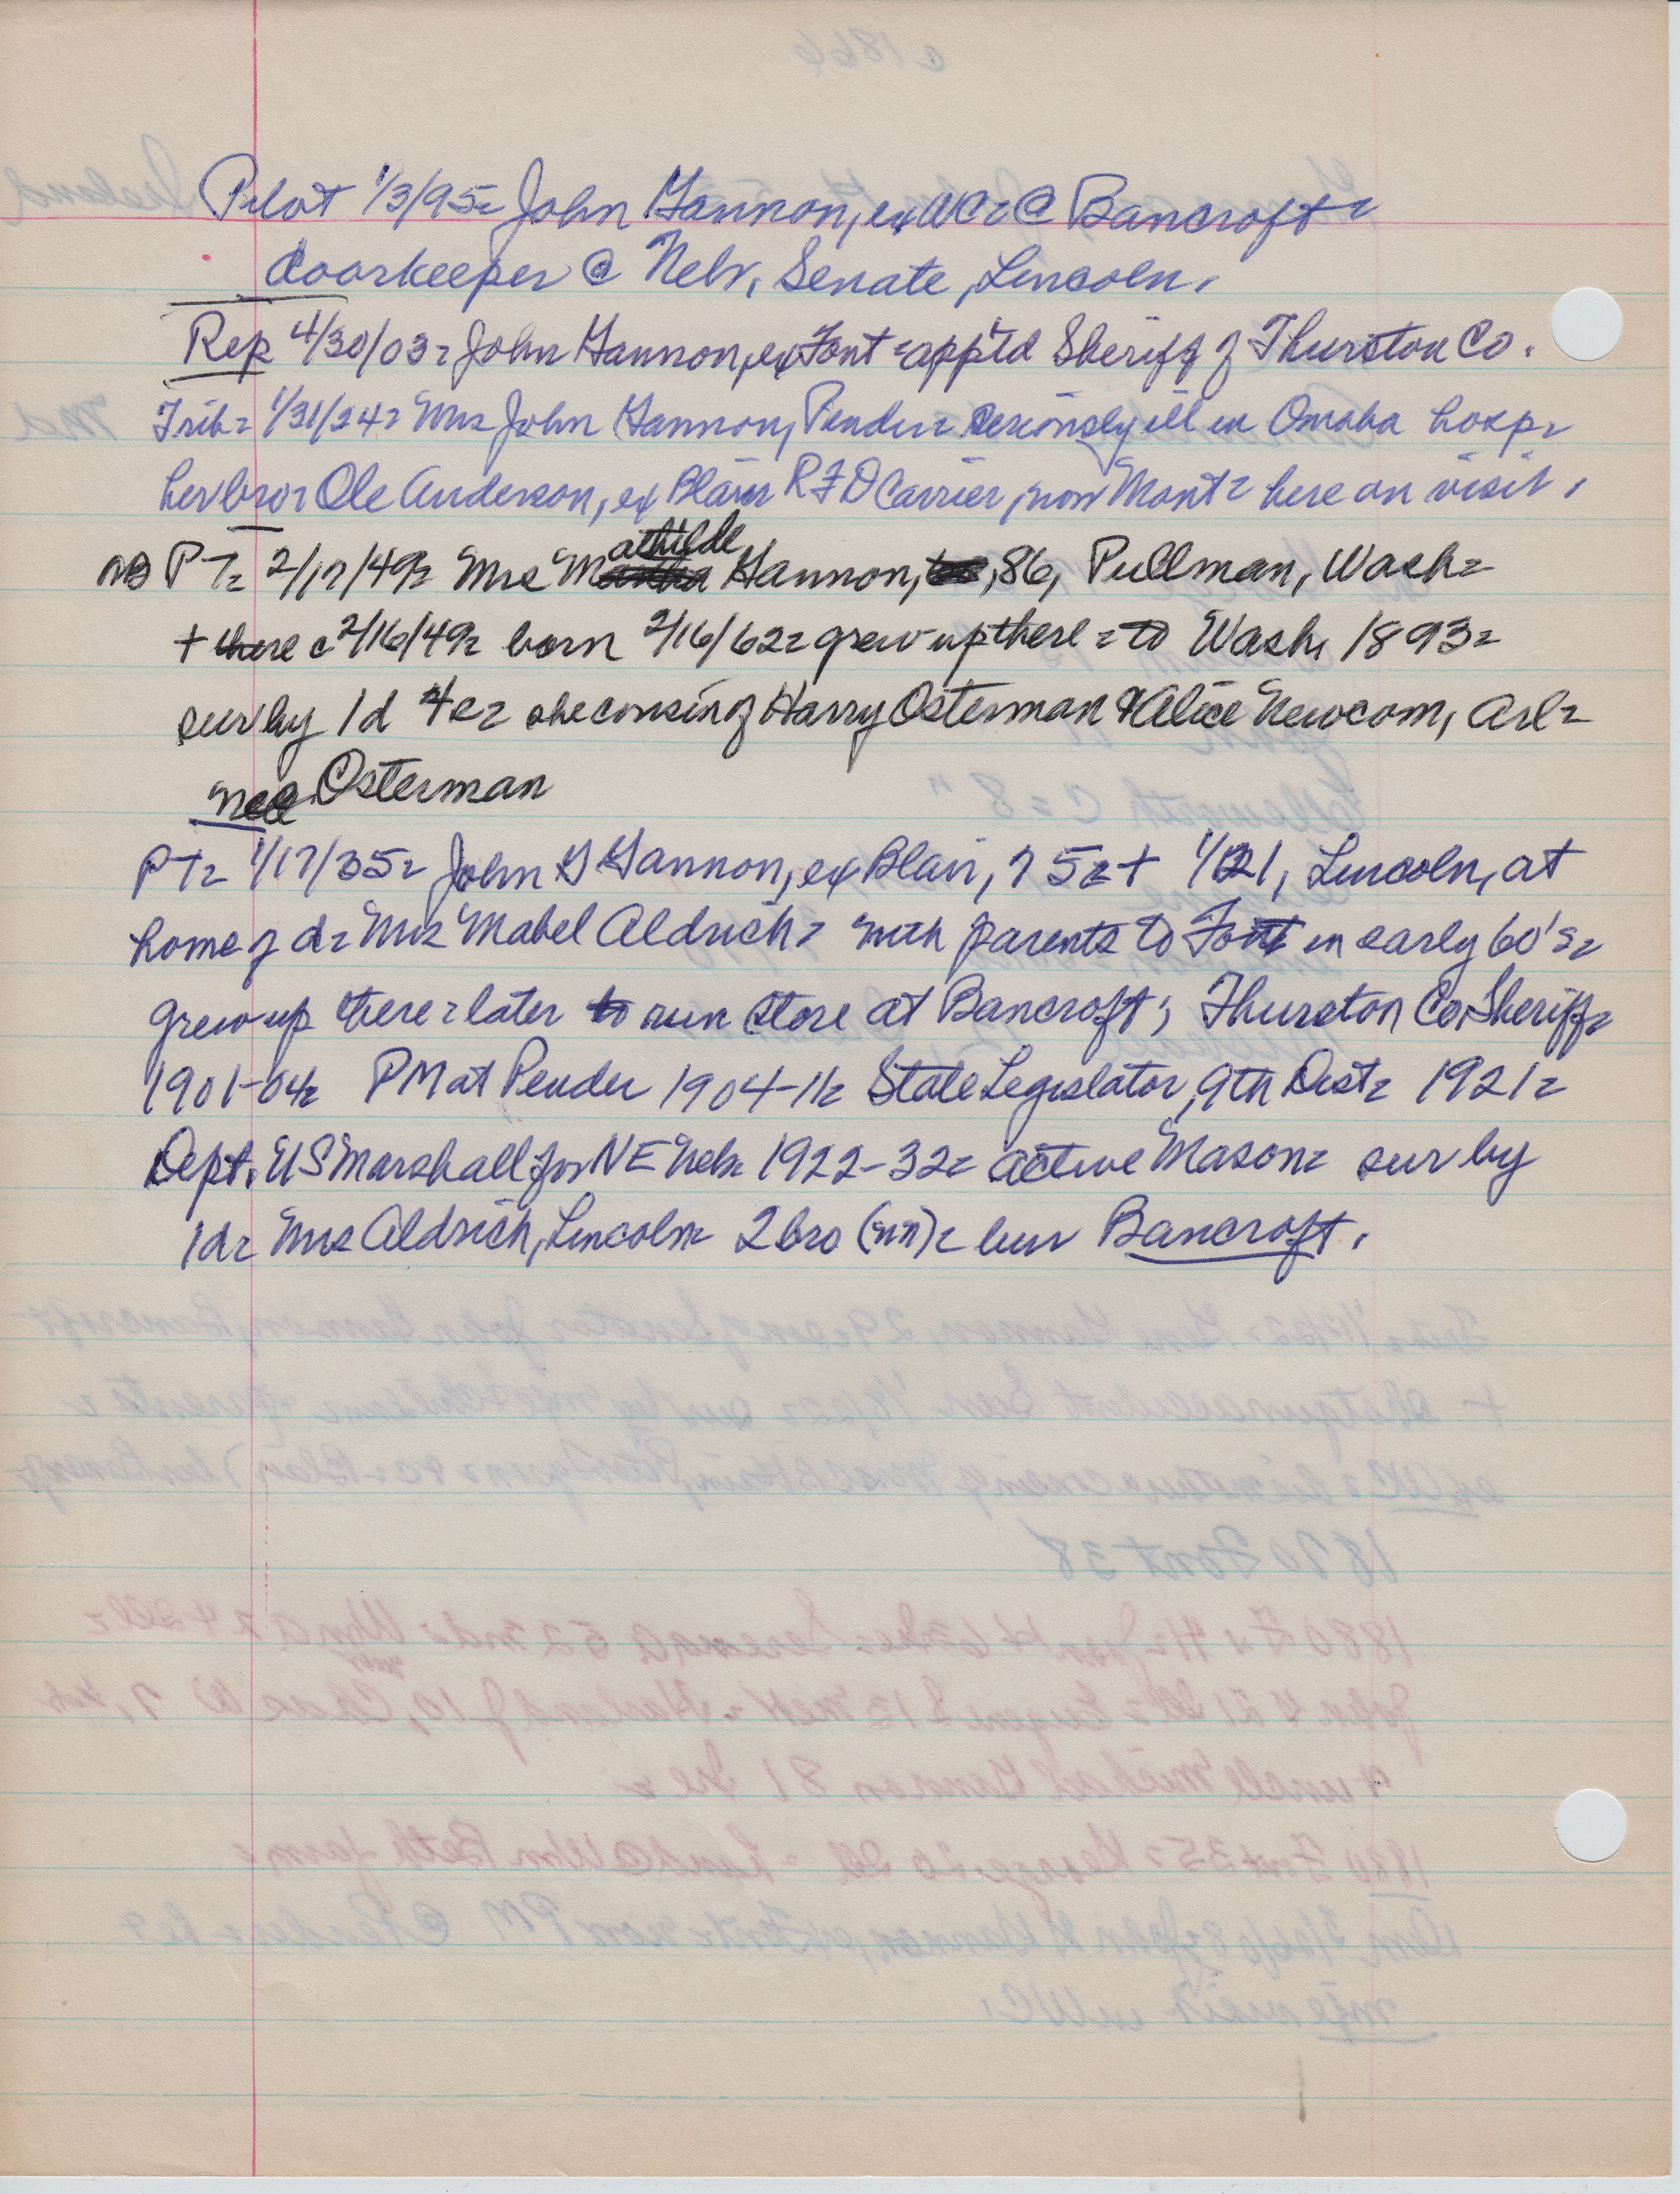 Pilot 1/3/95= John Gannon, ex WC= @ Bancroft=
doorkeeper @ Nebr, Senate, Lincoln.
Rep 4/30/03= John Gannon, ex Font= app'td Sheriff of Thurston Co.
Trib= 1/31/24= Mrs John Gannon, Pender= seriously ill in Omaha hosp=
her bro= Ole Anderson, ex Blair RFD Carrier, now Mont= here on visit.
PT= 2/17/49= Mrs Mathilde Gannon, 86, Pullman, Wash=
+ there c 2/16/49= born 2/16/62= grew up there= to Wash, 1893=
sur by 1d 4c= she cousin of Harry Osterman & Alice Newcom, Arl=
nee Osterman
PT= 1/17/35= John G Gannon, ex Blair, 75= + 1/21, Lincoln, at
home of d= Mrs Mabel Aldrich= with parents to Font in early 60's=
grew up there= later to run store at Bancroft; Thurston Co, Sheriff=
1901-04= PM at Pender 1904-11= State Legislator, 9th Dist= 1921=
Dept. US Marshall for NE Neb= 1922-32= active Mason= sur by
1d= Mrs Aldrich, Lincoln= 2 bro (nn)= bur Bancroft.